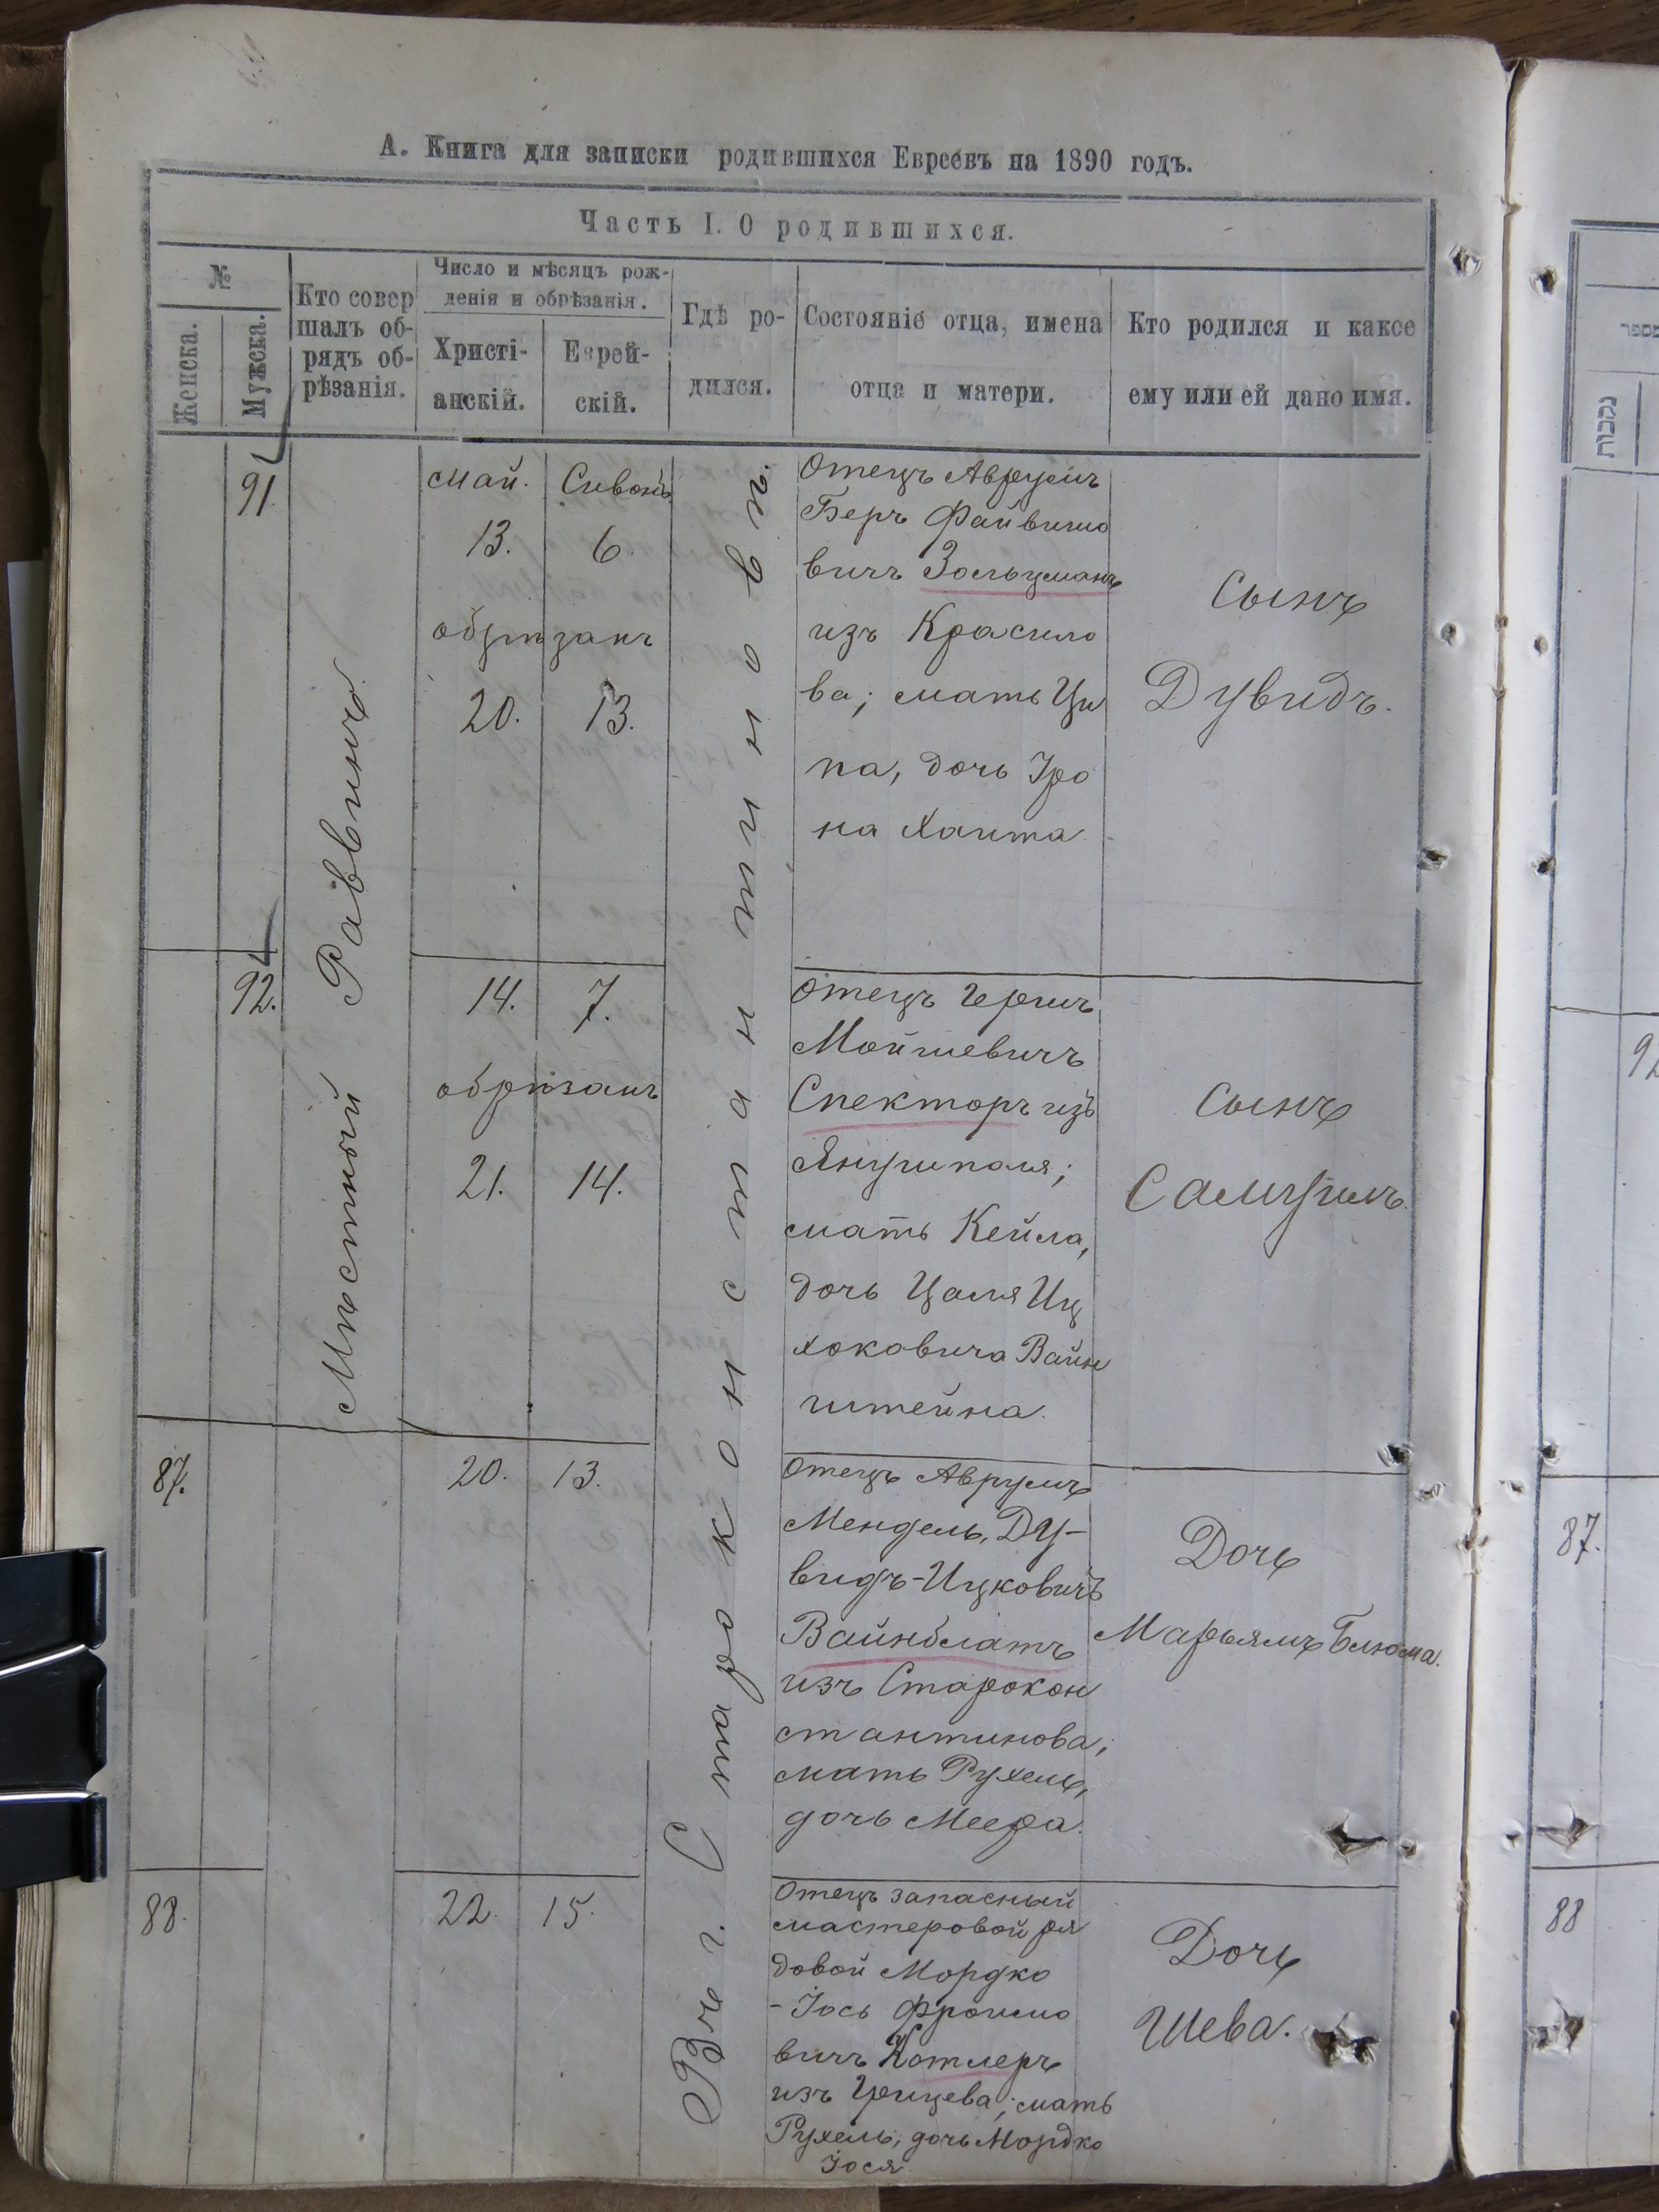 А. Книга для записки родившихся Евреевъ на 1890 годъ.
Часть I. О родившихся.
№
Женска.
Мужска.
Кто совер
шалъ об-
рядъ об-
рѣзанія.
Число и мѣсяцъ рож-
денія и обрѣзанія.
Христі-
анскій.
Еврей-
скій.
Гдѣ ро-
дился.
Состояніе отца, имена
отца и матери.
Кто родился и какое
ему или ей дано имя.
Мѣстный Раввинъ.
Въ г. Староконстантиновѣ.
91.
май. Сивонъ
13. 6.
обрѣзанъ
20. 13.
Отецъ Аврумъ
Беръ Файвишо
вичъ Зольцманъ
изъ Красило
ва; мать Ци
па, дочь
на Хаита
Сынъ
Дувидъ.
92.
14. 7.
обрѣзанъ
21. 14.
Отецъ Гершъ
Мойшевичъ
Спекторъ изъ
Янушполя;
мать Кейла,
дочь Цаля Иц
хоковича Вайн
штейна.
Сынъ
Самуилъ.
87.
20. 13.
Отецъ Аврумъ
Мендель, Ду-
видъ-Ицковичъ
Вайнблатъ
изъ Старокон
стантинова;
мать Рухель,
дочь Меера.
Дочь
Марьямъ Блюма.
88.
22. 15.
Отецъ запасный
мастеровой ря
довой Мордко
-Іось Фроимо
вичъ Котлеръ
изъ Грицева; мать
Рухель, дочь Мордко
Іося.
Дочь
Шева.
מספר
נקבות
92
87.
88